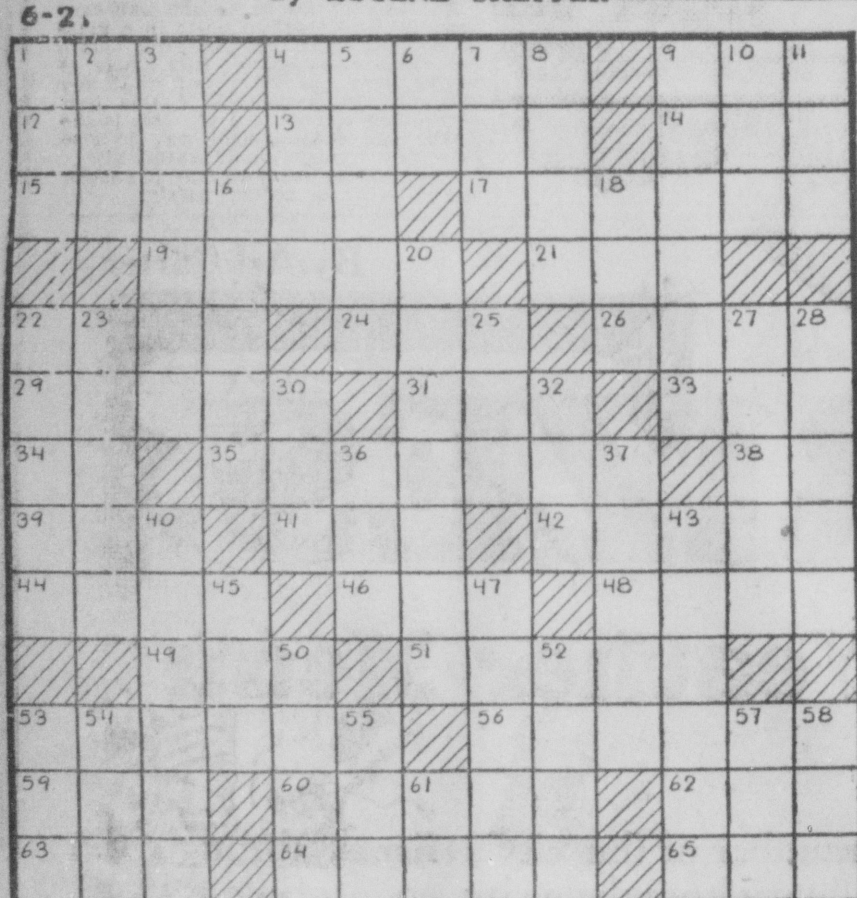 6-2.
1 2 3 4 5 6 7 8 9 10 11
12 13 14
15 16 17 18
19 20 21
22 23 24 25 26 27 28
29 30 31 32 33
34 35 36 37 38
39 40 41 42 43
44 45 46 47 48
49 50 51 52
53 54 55 56 57 58
59 60 61 62
63 64 65